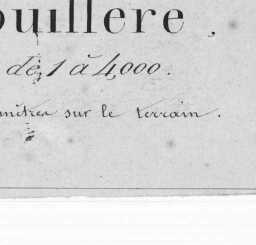 ouillère.
de 1 à 4,000.
mètres sur le terrain.